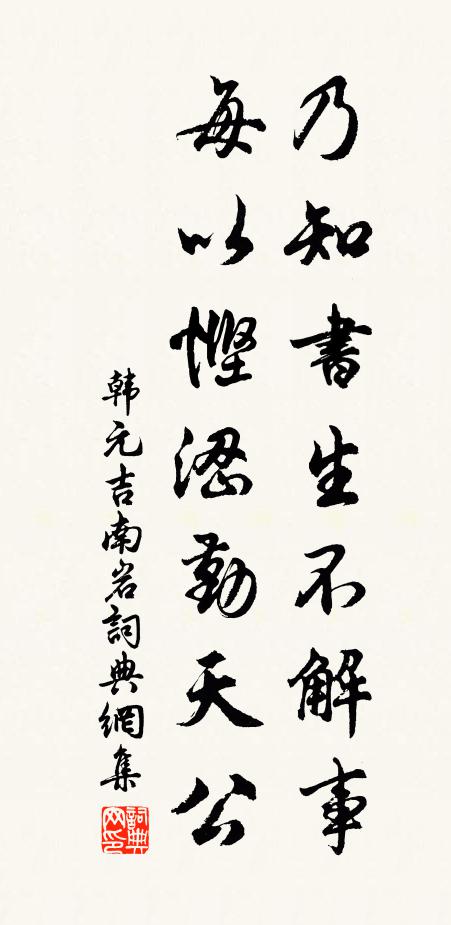 乃知書生不解事
每以慳涩勤天公
韩元吉南岩詞典網集
詞典
网印